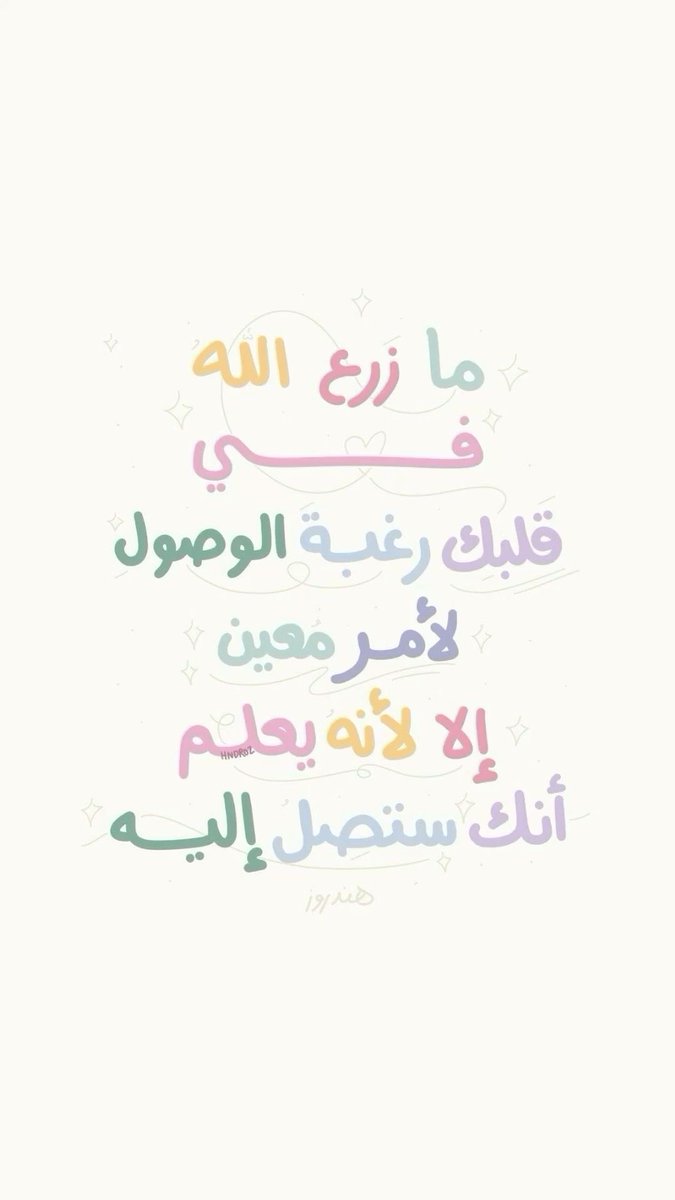 ما زرع اللّٰه
في
قلبك رغبة الوصول
لأمر مُعين
إلا لأنهُ يعلم
HNDR02
أنك ستصل إليه
هندروز